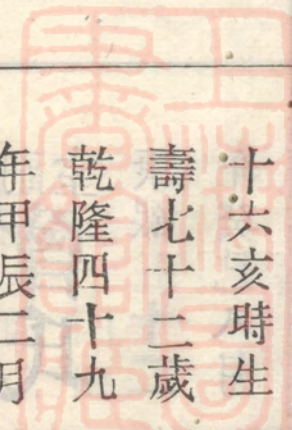 十六亥時生
壽七十二歲
乾隆四十九
年甲辰二月